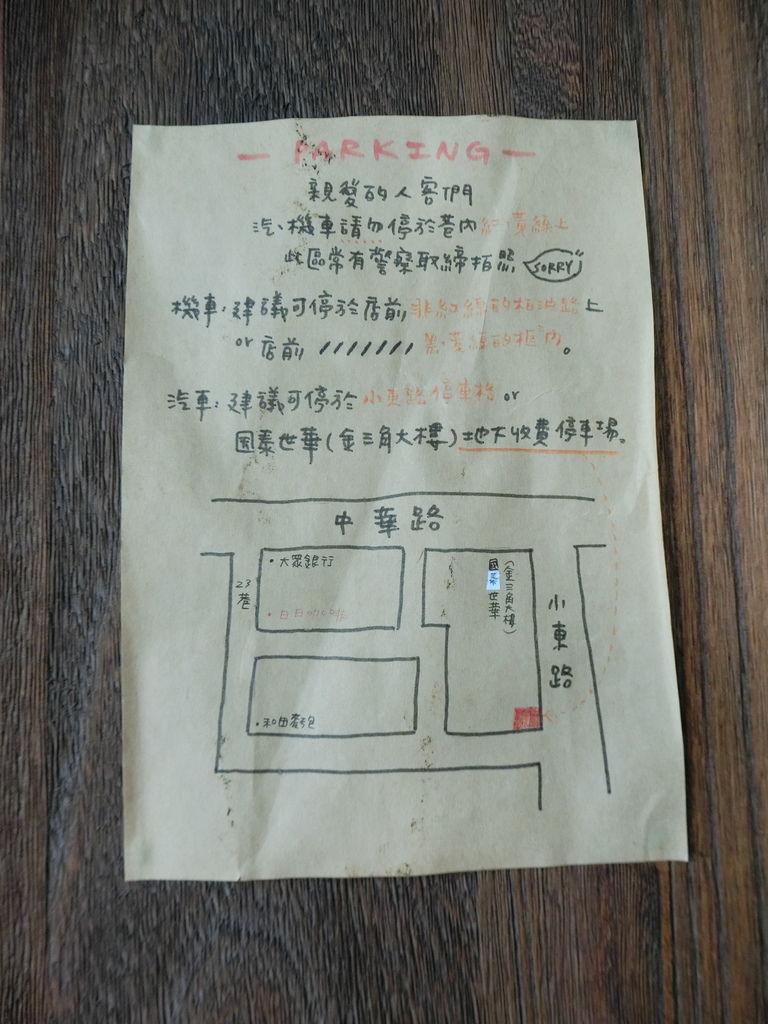 — PARKING —
親愛的人客們
汽、機車請勿停於巷內紅、黃線上
此區常有警察取締拍照 SORRY
機車:建議可停於店前非紅線的柏油路上
or 店前 ///////// 黑、黃線的框內。
汽車:建議可停於小東路停車格 or
國泰世華(金三角大樓)地下收費停車場。
中華路
23巷
・大眾銀行
・日日咖啡
・和田麵包
國泰世華
(金三角大樓)
小東路